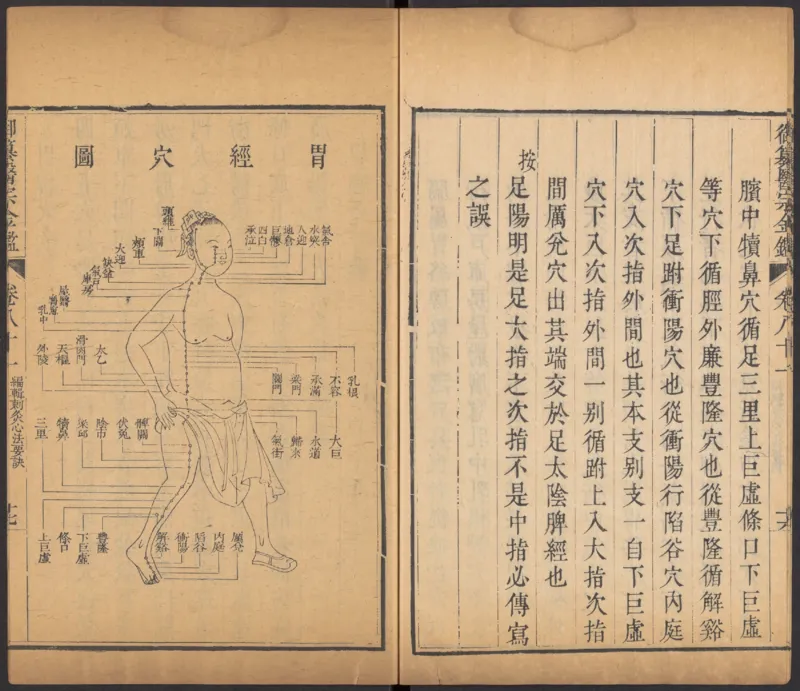 御纂醫宗金鑑
卷八十一
臏中犢鼻穴循足三里上巨虛條口下巨虛
等穴下循脛外廉豐隆穴也從豐隆循解谿
穴下足跗衝陽穴也從衝陽行陷谷穴內庭
穴入次指外間也其本支别支一自下巨虛
穴下入次指外間一别循跗上入大指次指
間厲兌穴出其端交於足太陰脾經也
按
足陽明是足大指之次指不是中指必傳寫
之誤
胃經穴圖
氣舍
水突
人迎
地倉
巨髎
四白
承泣
頭維
下關
頰車
大迎
缺盆
氣戶
庫房
屋翳
膺窗
乳中
乳根
不容
承滿
梁門
關門
太乙
滑肉門
天樞
外陵
大巨
水道
歸來
氣衝
髀關
伏兔
陰市
梁邱
犢鼻
三里
厲兌
內庭
陷谷
衝陽
解谿
豐隆
下巨虛
條口
上巨虛
御纂醫宗金鑑
卷八十一
編輯刺灸心法要訣